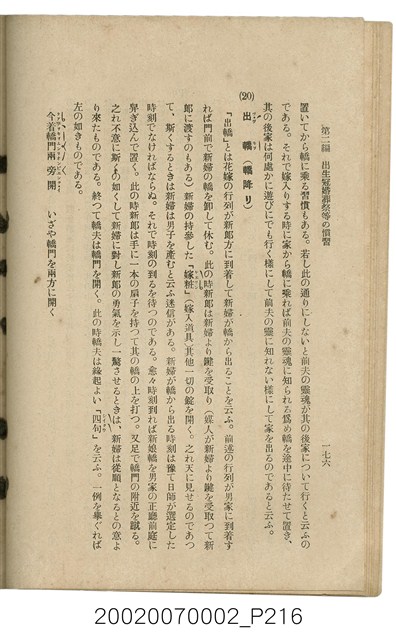 第二編　出生冠婚葬祭等の慣習
一七六
置いてから轎に乘る習慣もある。若し此の通りにしないと前夫の靈魂が其の後家について行くと云ふの
である。それで嫁入りする時に家から轎に乘れば前夫の靈魂に知られる爲め轎を途中に待たせて置き、
其の後家は何處かに遊びにでも行く樣にして前夫の靈に知れない樣にして家を出るのであると云ふ。
(20)　出　轎（轎降り）
「出轎」とは花嫁の行列が新郎方に到着して新婦が轎から出ることを云ふ。前述の行列が男家に到着す
れば門前で新婦の轎を卸して休む。此の時新郎は新婦より鍵を受取り（媒人が新婦より鍵を受取つて新
郎に渡すのもある）新婦の持參した「嫁粧」（嫁入道具）其他一切の錠を開く。之れ天に見せるのであつ
て、斯くするときは新婦は男子を產むと云ふ迷信がある。新婦が轎から出る時刻は豫て日師が選定した
時刻でなければならぬ。それで時刻の到るを待つのである。愈々時刻到れば新娘轎を男家の正廳前庭に
舁ぎ込んで置く。此の時新郎は手に一本の扇子を持つて其の轎の上を打つ。又足で轎門の附近を蹴る。
之れ不意に斯くの如くして新婦に對し新郎の勇氣を示し一驚させるときは、新婦は從順となるとの意よ
り來たものである。終つて轎夫は轎門を開く。此の時轎夫は緣起よい「四句」を云ふ。一例を擧ぐれば
左の如きものである。
今若轎門兩旁開　いざや轎門を兩方に開く
20020070002_P216